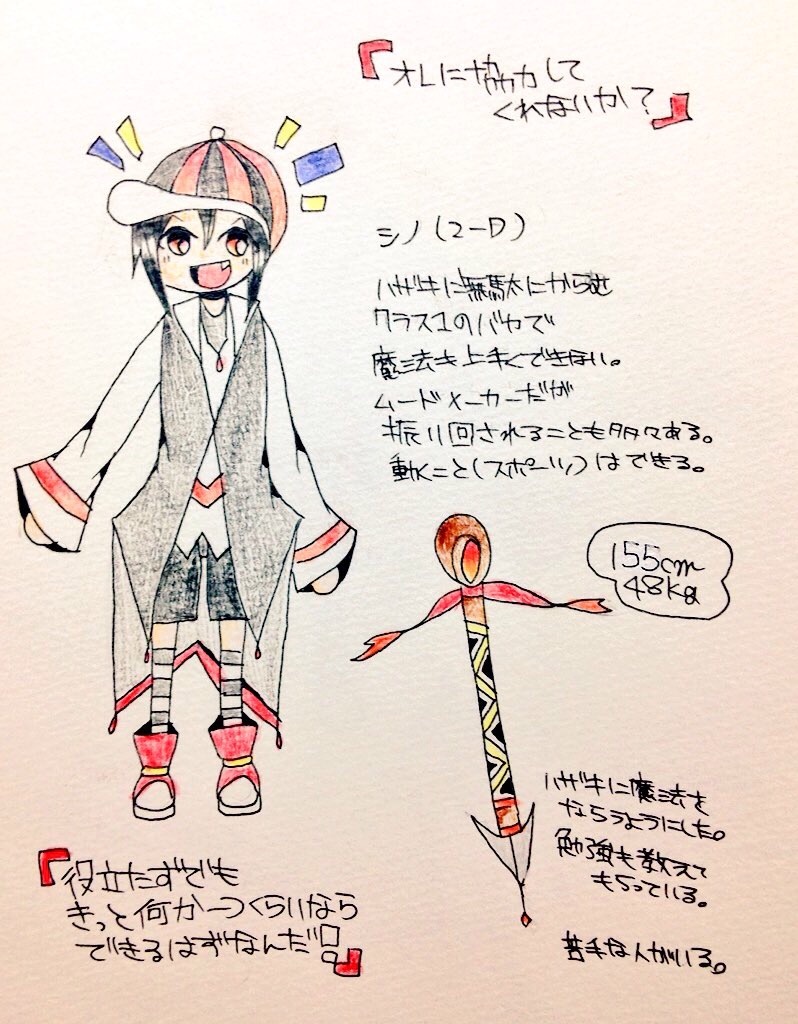 『オレに協力して
くれないか？』
シノ(2-D)
ハザキに無駄にからむ
クラス1のバカで
魔法も上手くできない。
ムードメーカーだが
振り回されることも多々ある。
動くこと(スポーツ)はできる。
155cm
48kg
ハザキに魔法を
ならうようにした。
勉強も教えて
もらっている。
苦手な人がいる。
『役立たずでも
きっと何か一つくらいなら
できるはずなんだ!!』